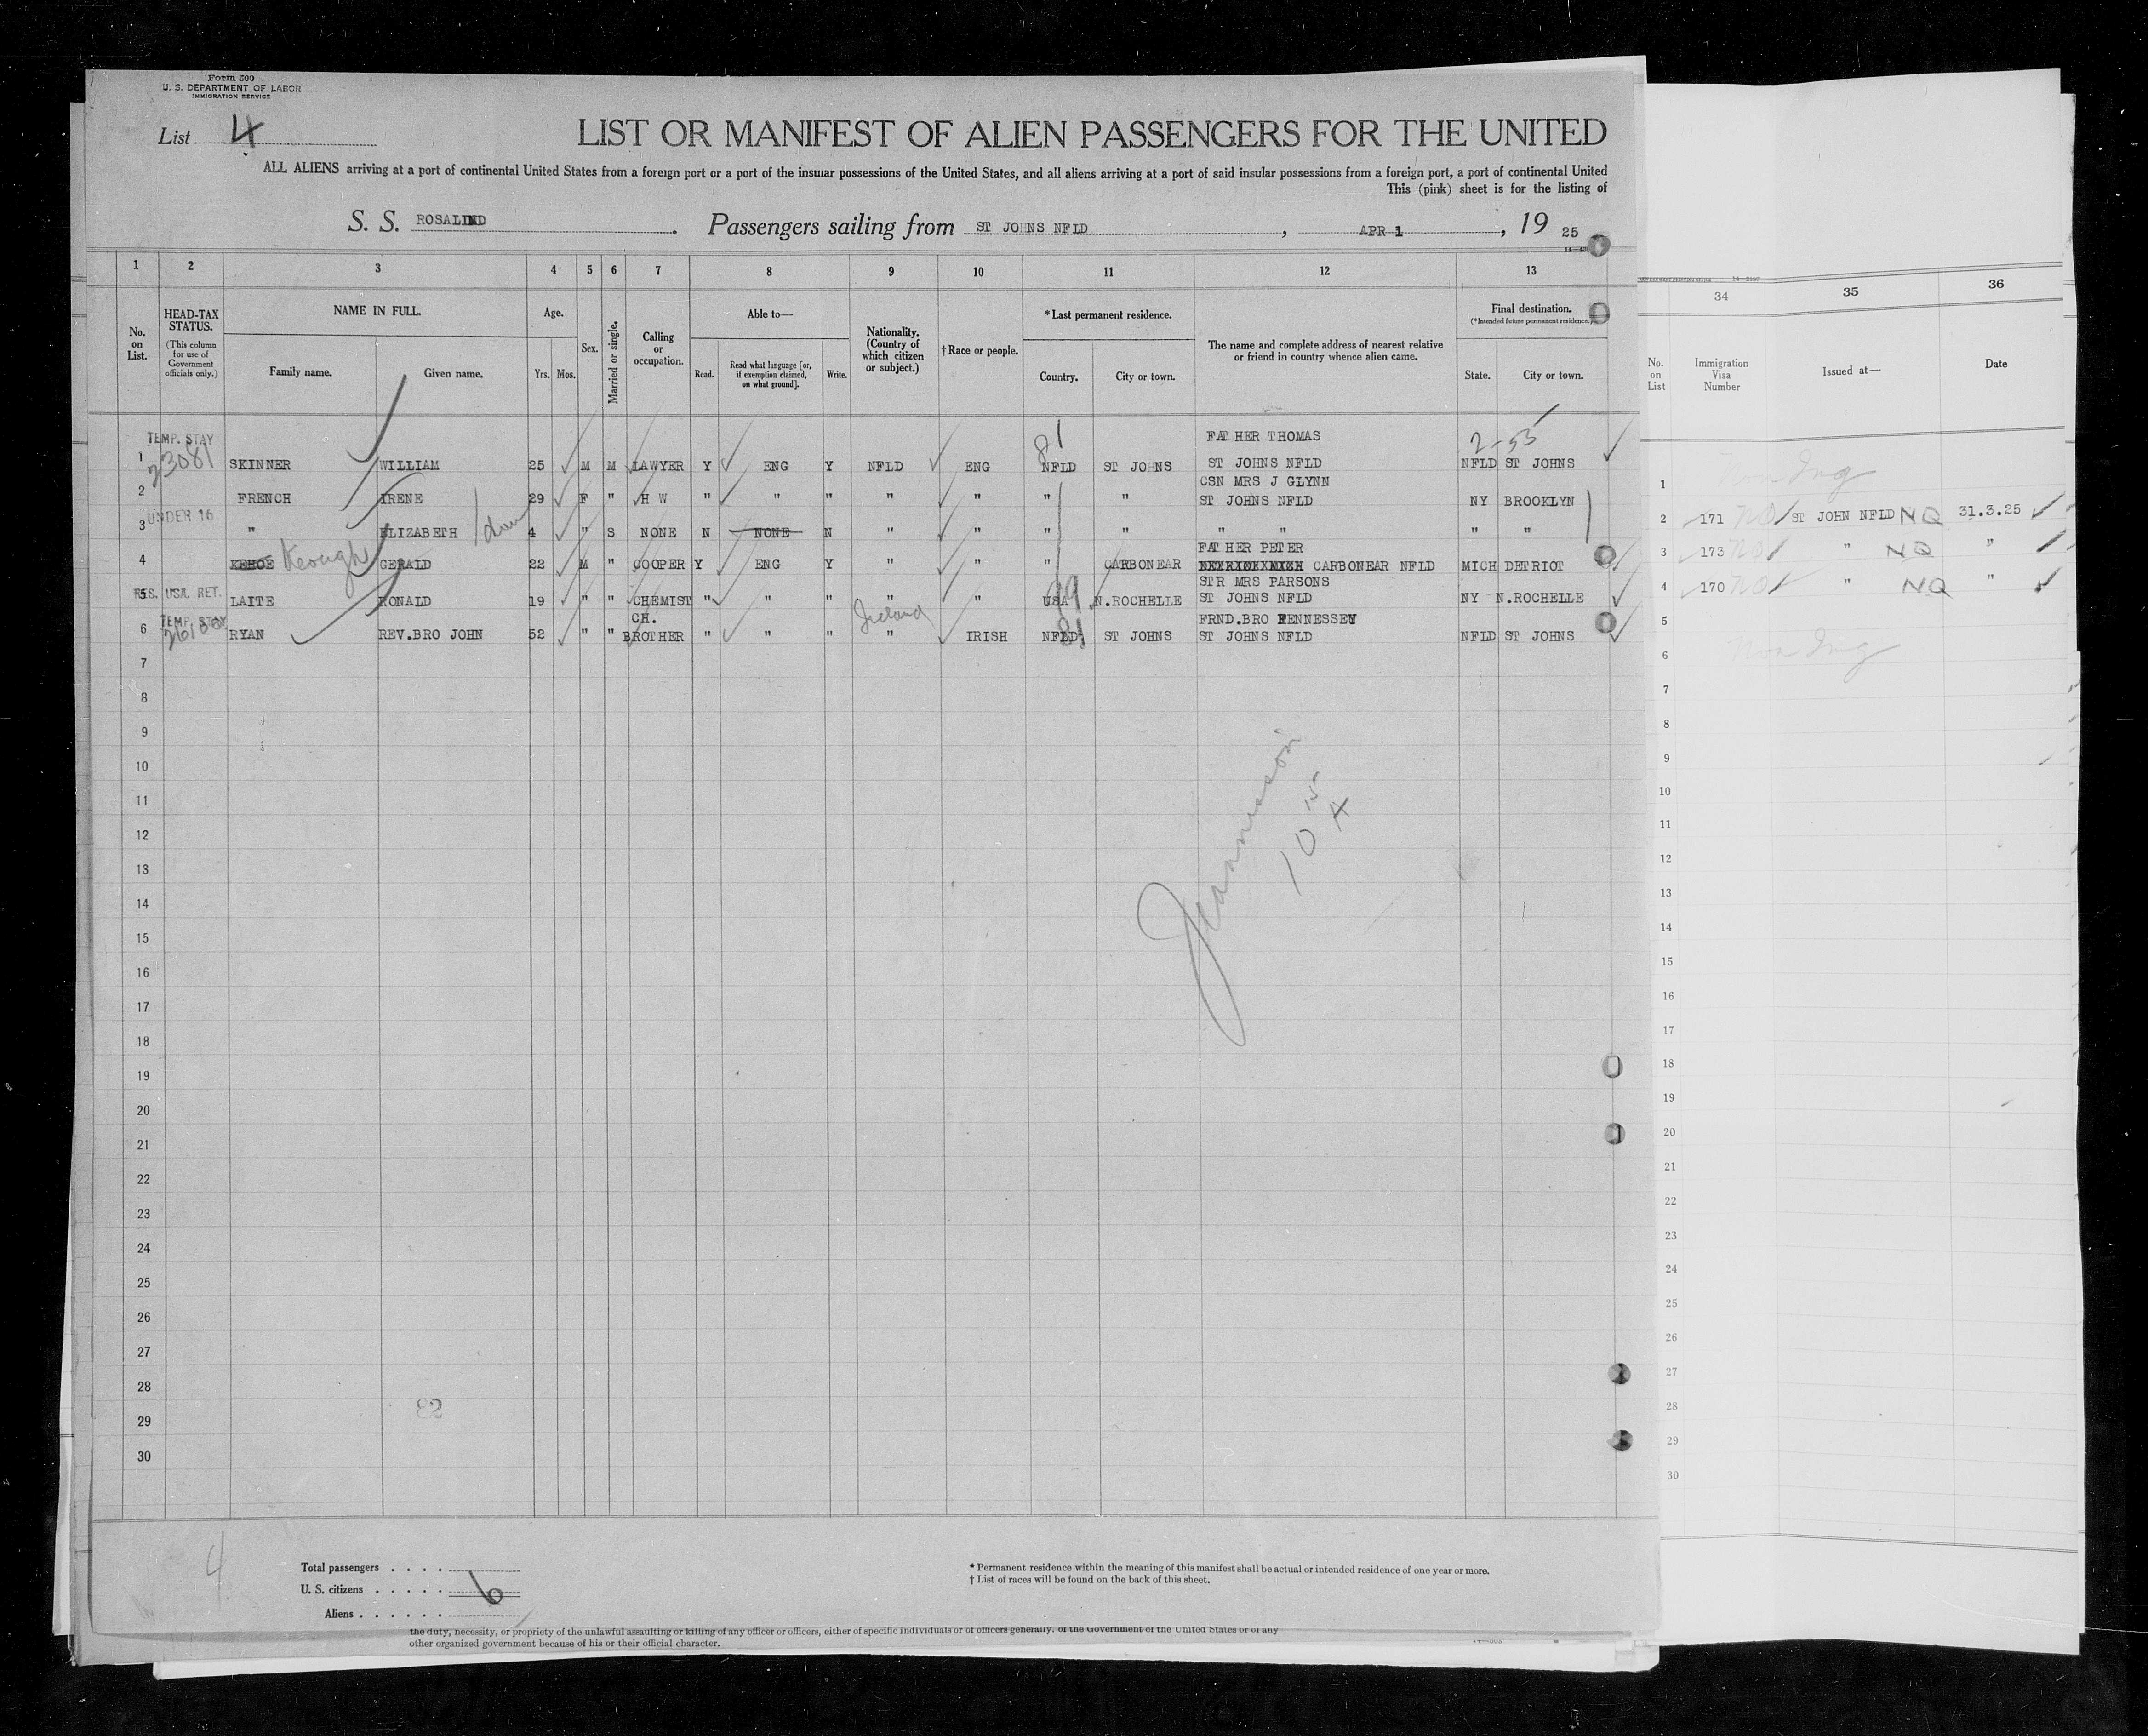 Form 500
U. S. DEPARTMENT OF LABOR
IMMIGRATION SERVICE
List 4
LIST OR MANIFEST OF ALIEN PASSENGERS FOR THE UNITED
ALL ALIENS arriving at a port of continental United States from a foreign port or a port of the insular possessions of the United States, and all aliens arriving at a port of said insular possessions from a foreign port, a port of continental United
This (pink) sheet is for the listing of
S. S. ROSALIND. Passengers sailing from ST JOHNS NFLD, APR 1, 19 25
1 2 3 4 5 6 7 8 9 10 11 12 13
No. on List.
HEAD-TAX STATUS.
(This column for use of Government officials only.)
NAME IN FULL.
Family name. Given name.
Age.
Yrs. Mos.
Sex.
Married or single.
Calling or occupation.
Able to—
Read. Read what language [or, if exemption claimed, on what ground]. Write.
Nationality. (Country of which citizen or subject.)
†Race or people.
*Last permanent residence.
Country. City or town.
The name and complete address of nearest relative or friend in country whence alien came.
Final destination.
(*Intended future permanent residence.)
State. City or town.
34 35 36
No. on List
Immigration Visa Number
Issued at—
Date
TEMP. STAY 81 FATHER THOMAS 2-55
1 23081 SKINNER WILLIAM 25 M M LAWYER Y ENG Y NFLD ENG NFLD ST JOHNS ST JOHNS NFLD NFLD ST JOHNS
CSN MRS J GLYNN
2 FRENCH IRENE 29 F " H W " " " " " " " ST JOHNS NFLD NY BROOKLYN
UNDER 16
3 " ELIZABETH 4 " S NONE N NONE N " " " " " " " "
FATHER PETER
4 KEHOE Keough GERALD 22 M " COOPER Y ENG Y " " " CARBONEAR CARBONEAR NFLD MICH DETRIOT
STR MRS PARSONS
5 RES. USA. RET. LAITE RONALD 19 " " CHEMIST " " " " " USA N.ROCHELLE ST JOHNS NFLD NY N.ROCHELLE
TEMP. STAY CH. Ireland FRND.BRO FENNESSEY
6 RYAN REV.BRO JOHN 52 " " BROTHER " " " " IRISH NFLD 81 ST JOHNS ST JOHNS NFLD NFLD ST JOHNS
7
8
9
10
11
12
13
14
15
16
17
18
19
20
21
22
23
24
25
26
27
28
29
30
1 Non Img
2 171 ST JOHN NFLD NQ 31.3.25
3 173 " NQ "
4 170 " NQ "
5
6 Non Img
7
8
9
10
11
12
13
14
15
16
17
18
19
20
21
22
23
24
25
26
27
28
29
30
82
4
Total passengers . . . .
U. S. citizens . . . . . 6
Aliens . . . . . .
* Permanent residence within the meaning of this manifest shall be actual or intended residence of one year or more.
† List of races will be found on the back of this sheet.
the duty, necessity, or propriety of the unlawful assaulting or killing of any officer or officers, either of specific individuals or of officers generally, of the Government of the United States or of any
other organized government because of his or their official character.